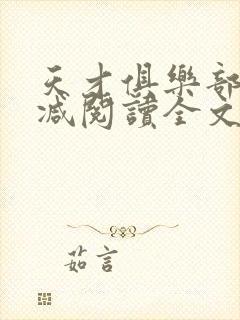 天才俱樂部
減閱讀全文
茹言